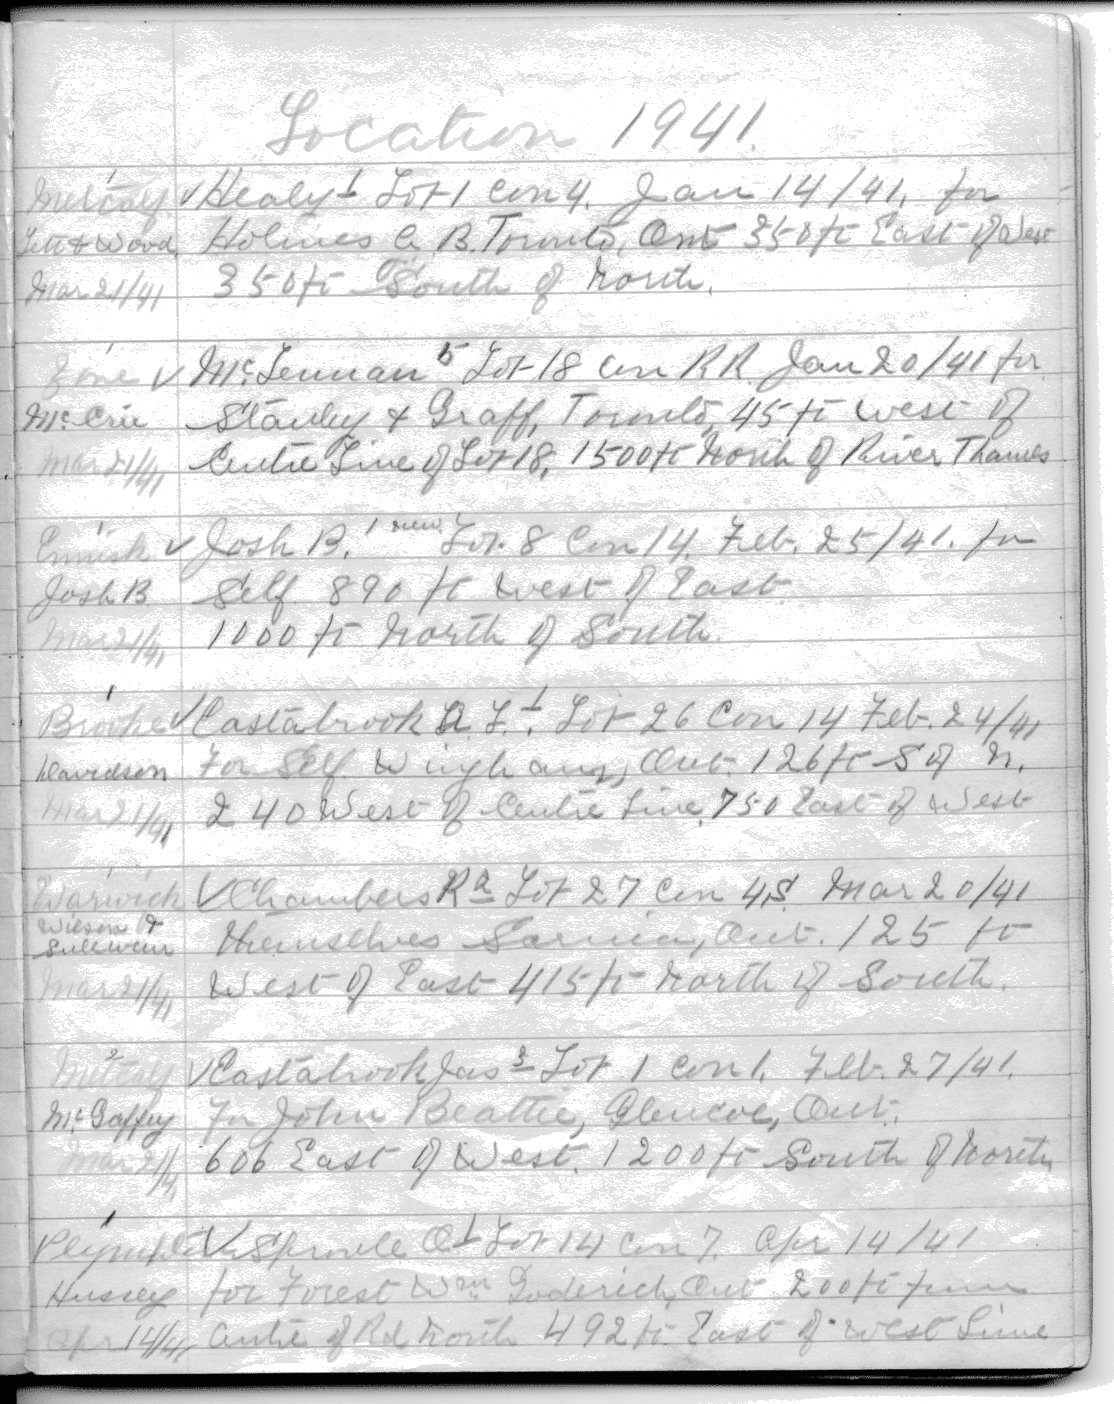 Location 1941.
1
Metcalf ✓ Healy 1 Lot 1 Con 4. Jan 14/41. for
Lett & Wood Holmes C. B. Toronto, Ont 350 ft East of West
Mar 21/41 350 ft South of North.
1
Zone ✓ McLennan 5 Lot 18 Con R.R. Jan 20/41 for
McCrie Stanley & Graff, Toronto, 45 ft West of
Mar 21/41 Centre Line of Lot 18, 1500 ft North of River Thames
1
Ennisk ✓ Josh B. 1 new Lot 8 Con 14. Feb. 25/41. for
Josh B Self 890 ft West of East
Mar 21/41 1000 ft North of South.
1
Brooke ✓ Eastabrook A. L. 1, Lot 26 Con 14 Feb. 24/41
Davidson For Self Wingham, Ont. 126 ft S of N.
Mar 21/41 240 West of Centre Line, 750 East of West
1
Warwick ✓ Chambers R 2 Lot 27 Con 4 S. Mar 20/41
Wilson & Sullivan themselves Sarnia, Ont. 125 ft
Mar 21/41 West of East 415 ft North of South.
2
Metcalf ✓ Eastabrook Jas 3 Lot 1 Con 1. Feb. 27/41.
McGaffey For John Beattie, Glencoe, Ont.
Mar 21/41 606 East of West. 1200 ft South of North
1
Plympton ✓ Sproule O 1 Lot 14 Con 7. Apr 14/41
Hussey for Forest Wm Goderich, Ont 200 ft from
Apr 14/41 Centre of Rd North 492 ft East of West Line